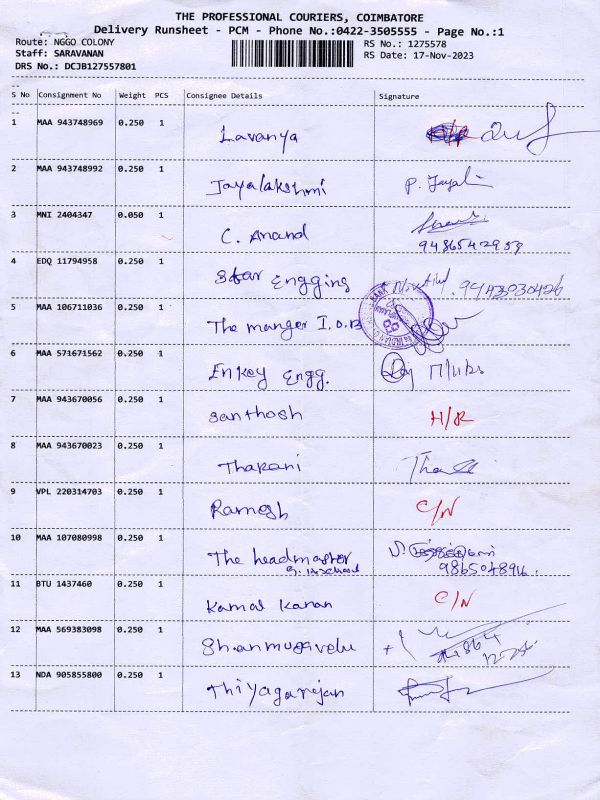 THE PROFESSIONAL COURIERS, COIMBATORE
Delivery Runsheet - PCM - Phone No.:0422-3505555 - Page No.:1
Route: NGGO COLONY
Staff: SARAVANAN
DRS No.: DCJB127557801
RS No.: 1275578
RS Date: 17-Nov-2023
S No Consignment No Weight PCS Consignee Details Signature
1 MAA 943748969 0.250 1 Lavanya
2 MAA 943748992 0.250 1 Jayalakshmi P. Jayal
3 MNI 2404347 0.050 1 C. Anand
9486542959
4 EDQ 11794958 0.250 1 Star Engging 9443030426
5 MAA 106711036 0.250 1 The manger I.O.B
6 MAA 571671562 0.250 1 Enkey Engg.
7 MAA 943670056 0.250 1 Santhosh H/R
8 MAA 943670023 0.250 1 Tharani
9 VPL 220314703 0.250 1 Ramesh C/N
10 MAA 107080998 0.250 1 The headmaster
9865048916.
11 BTU 1437460 0.250 1 Kamal Kanan C/N
12 MAA 569383098 0.250 1 Shanmugavelu
13 NDA 905855800 0.250 1 Thiyagarajan